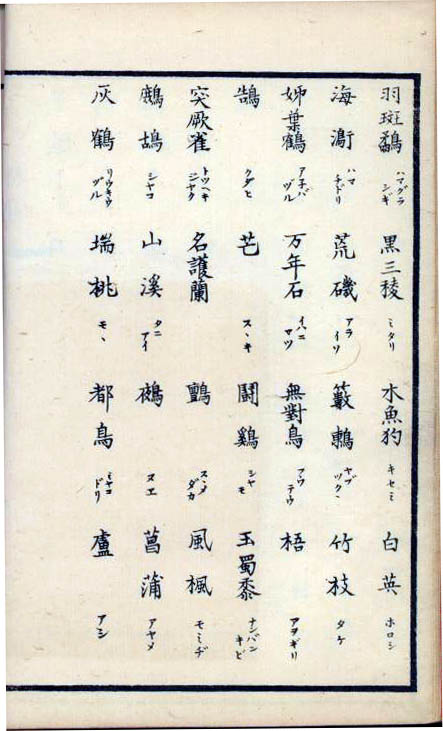 羽斑鷸 ハマグラシギ 黒三稜 ミクリ 水魚狗 キセミ 白英 ホロシ
海鸻 ハマチドリ 荒磯 アライソ 藪鶫 ヤブツクミ 竹枝 タケ
姉葉鶴 アネバヅル 万年石 イハニマツ 無對鳥 フウテウ 梧 アヲギリ
鵠 クグヒ 芒 スヽキ 鬪鷄 シヤモ 玉蜀黍 ナンバンキビ
突厥雀 トツヘキジヤク 名護蘭 鸇 スヾメダカ 風楓 モミヂ
鷓鴣 シヤコ 山溪 タニアイ 鵺 ヌエ 菖蒲 アヤメ
灰鶴 リウキウヅル 瑞桃 モヽ 都鳥 ミヤコドリ 蘆 アシ